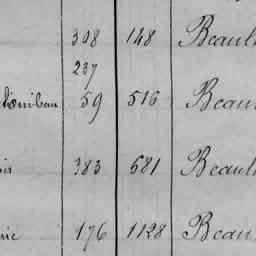 308 148 Beaul
237
59 516 Beau
383 681 Beaul
176 1128 Beau